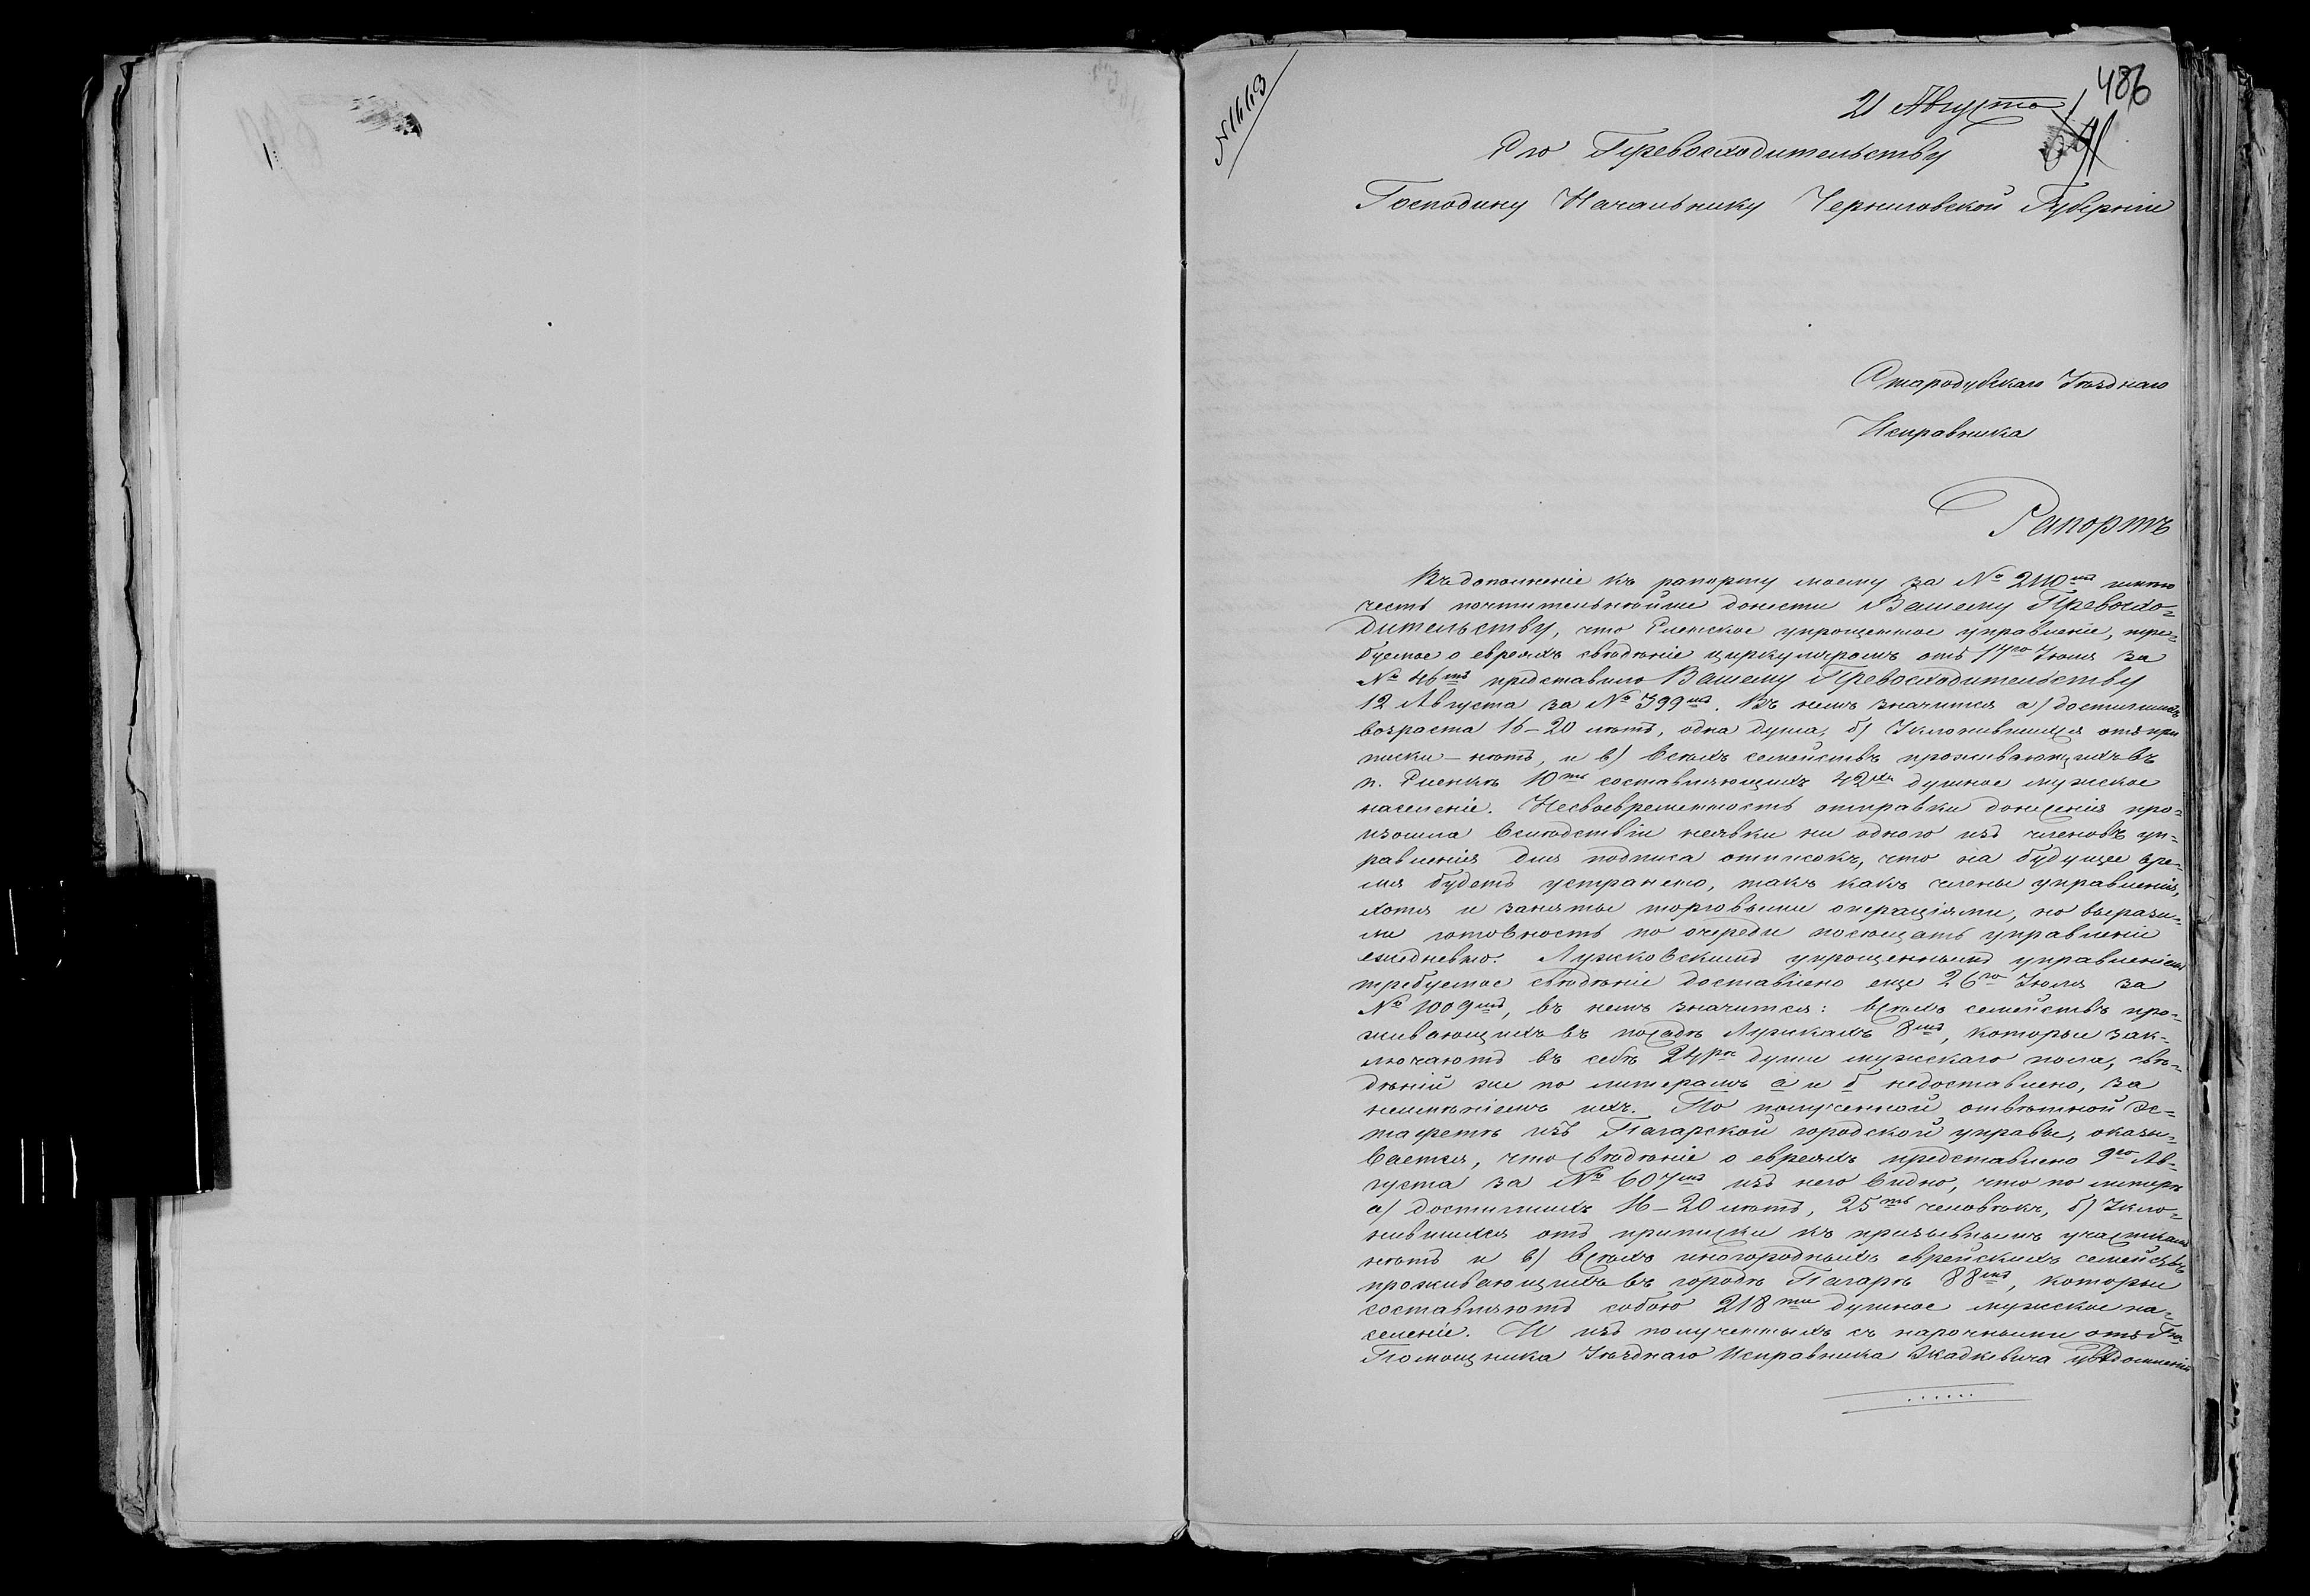 486
21 Августа
№1443
Его Превосходительству
Господину Начальнику Черниговской Губерніи
Стародубскаго Уѣзднаго
Исправника
Рапортъ
Въ дополненіе къ рапорту моему за № 2110мъ имѣю
честь почтительнѣйше донести Вашему Превосхо=
дительству, что Еленское упрощенное управленіе, тре=
буемое о евреяхъ свѣдѣніе циркуляромъ отъ 17го Іюля за
№ 46мъ представило Вашему Превосходительству
12 Августа за № 399мъ. Въ немъ значится а) достигшихъ
возраста 16–20 лѣтъ, одна душа, б) Уклонившихся отъ при
писки – нѣтъ, и в) всѣхъ семействъ проживающихъ въ
п. Еленкѣ 10ть составляющихъ 42хъ душное мужское
населеніе. Несвоевременность отправки донесенія про=
изошла вслѣдствіи неявки ни одного изъ членовъ уп=
равленія для подписа отписокъ, что на будущее вре=
мя будетъ устранено, такъ какъ члены управленія,
хотя и заняты торговыми операціями, но вырази=
ли готовность по очереди посѣщать управленіе
ежедневно. Лужковскимъ упрощеннымъ управленіемъ
требуемое свѣдѣніе доставлено еще 26го Іюля за
№ 1009мъ, въ немъ значится: всѣхъ семействъ про=
живающихъ въ посадѣ Лужкахъ 8мъ, которые зак=
лючаютъ въ себѣ 24ре души мужскаго пола, свѣ=
дѣній же по литерамъ а и б недоставлено, за
неимѣніемъ ихъ. По полученной отвѣтной эс=
тафетѣ изъ Погарской городской управы, оказы=
вается, что свѣдѣніе о евреяхъ представлено 9го Ав=
густа за № 607мъ изъ него видно, что по литерѣ
а) достигшихъ 16–20 лѣтъ, 25ть человѣкъ, б) Укло=
нившихся отъ приписки къ призывнымъ участкамъ
нѣтъ и в) всѣхъ иногородныхъ еврейскихъ семействъ
проживающихъ въ городѣ Погарѣ 88мъ, которые
составляютъ собою 218ти душное мужское на=
селеніе. И изъ полученныхъ съ нарочными отъ Г.
Помощника Уѣзднаго Исправника Жадкевича увѣдомленій